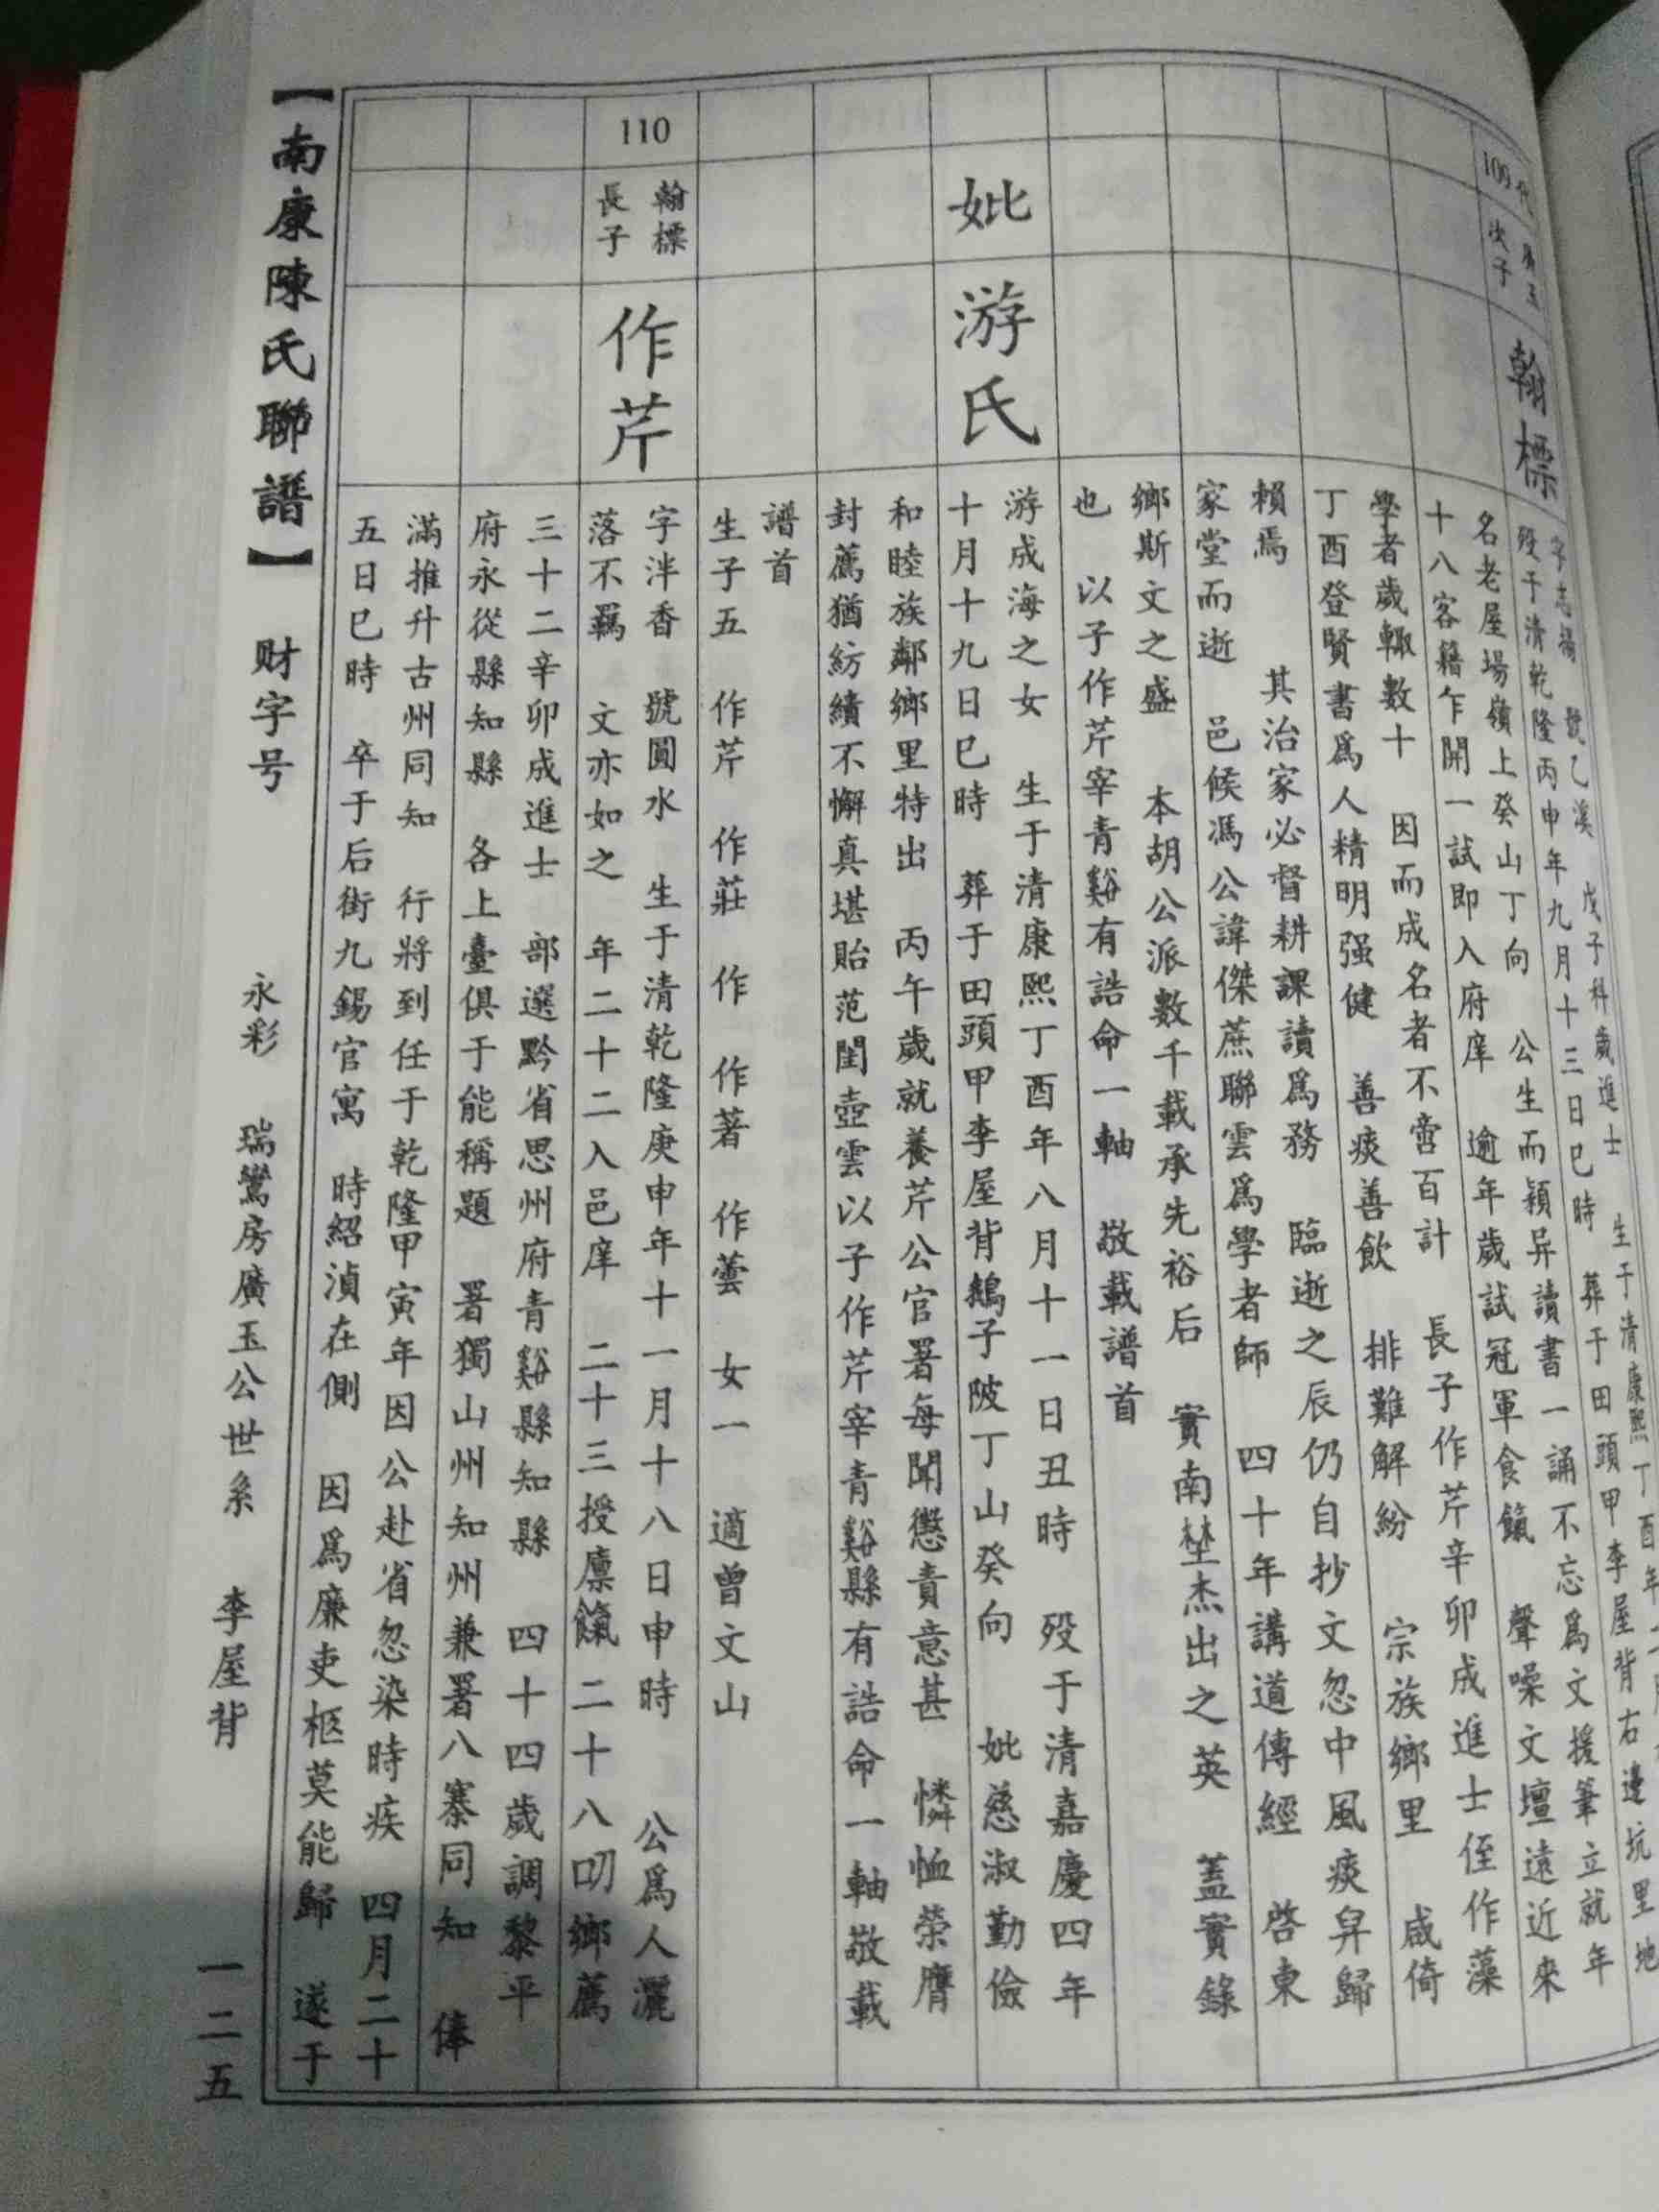 109代
次子
翰標
字志掦 號乙溪 戊子科歲進士 生于清康熙丁酉年
殁于清乾隆丙申年九月十三日巳時 葬于田頭甲李屋背右邊坑里地
名老屋場嶺上癸山丁向 公生而穎异讀書一誦不忘爲文援筆立就年
十八客籍乍開一試即入府庠 逾年歲試冠軍食餼 聲噪文壇遠近來
學者歲輙數十 因而成名者不啻百計 長子作芹辛卯成進士侄作藻
丁酉登賢書爲人精明强健 善痰善飲 排難解紛 宗族鄉里 咸倚
賴焉 其治家必督耕課讀爲務 臨逝之辰仍自抄文忽中風痰舁歸
家堂而逝 邑候馮公諱傑蔗聯雲爲學者師 四十年講道傳經 啓東
鄉斯文之盛 本胡公派數千載承先裕后 實南埜杰出之英 蓋實錄
也 以子作芹宰青谿有誥命一軸 敬載譜首
妣
游氏
游成海之女 生于清康熙丁酉年八月十一日丑時 殁于清嘉慶四年
十月十九日巳時 葬于田頭甲李屋背鵝子陂丁山癸向 妣慈淑勤儉
和睦族鄰鄉里特出 丙午歲就養芹公官署每聞懲責意甚 憐恤荣膺
封薦猶紡績不懈真堪貽范閨壺雲以子作芹宰青谿縣有誥命一軸敬載
譜首
生子五 作芹 作莊 作 作著 作蕓 女一 適曾文山
110
翰標
長子
作芹
字泮香 號圓水 生于清乾隆庚申年十一月十八日申時 公爲人灑
落不羈 文亦如之 年二十二入邑庠 二十三授廪餼二十八叨鄉薦
三十二辛卯成進士 部選黔省思州府青谿縣知縣 四十四歲調黎平
府永從縣知縣 各上臺俱于能稱題 署獨山州知州兼署八寨同知 俸
滿推升古州同知 行將到任于乾隆甲寅年因公赴省忽染時疾 四月二十
五日巳時 卒于后街九錫官寓 時紹湞在側 因爲廉吏柩莫能歸 遂于
【南康陳氏聯譜】 财字号 永彩 瑞鸞房廣玉公世系 李屋背 一二五